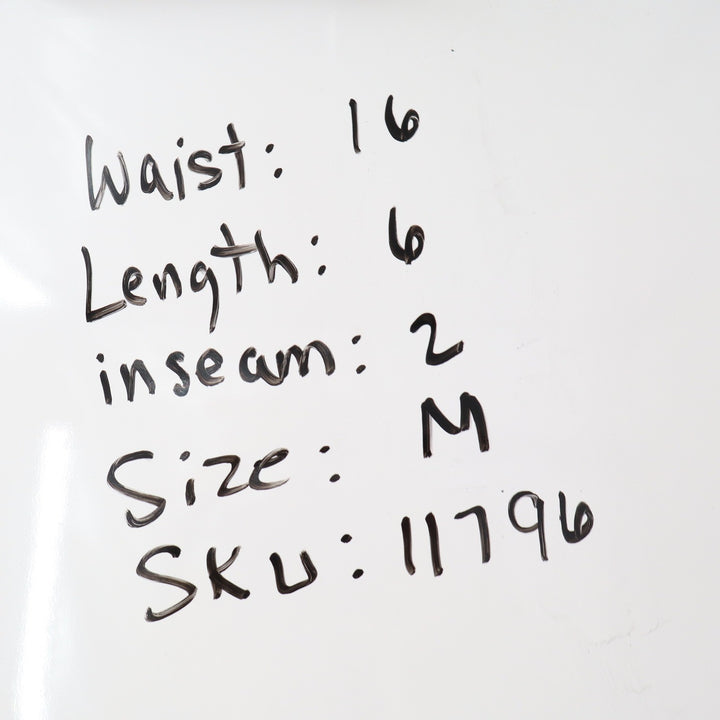 Waist: 16
Length: 6
inseam: 2
Size: M
SKU: 11796